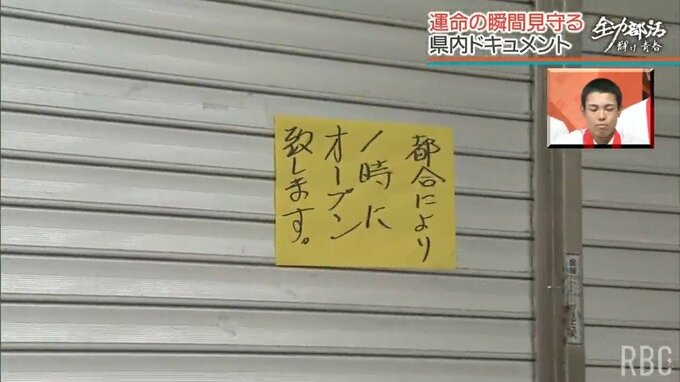 運命の瞬間見守る
県内ドキュメント
全力部活
輝け青春
都合により
1時に
オープン
致します。
RBC